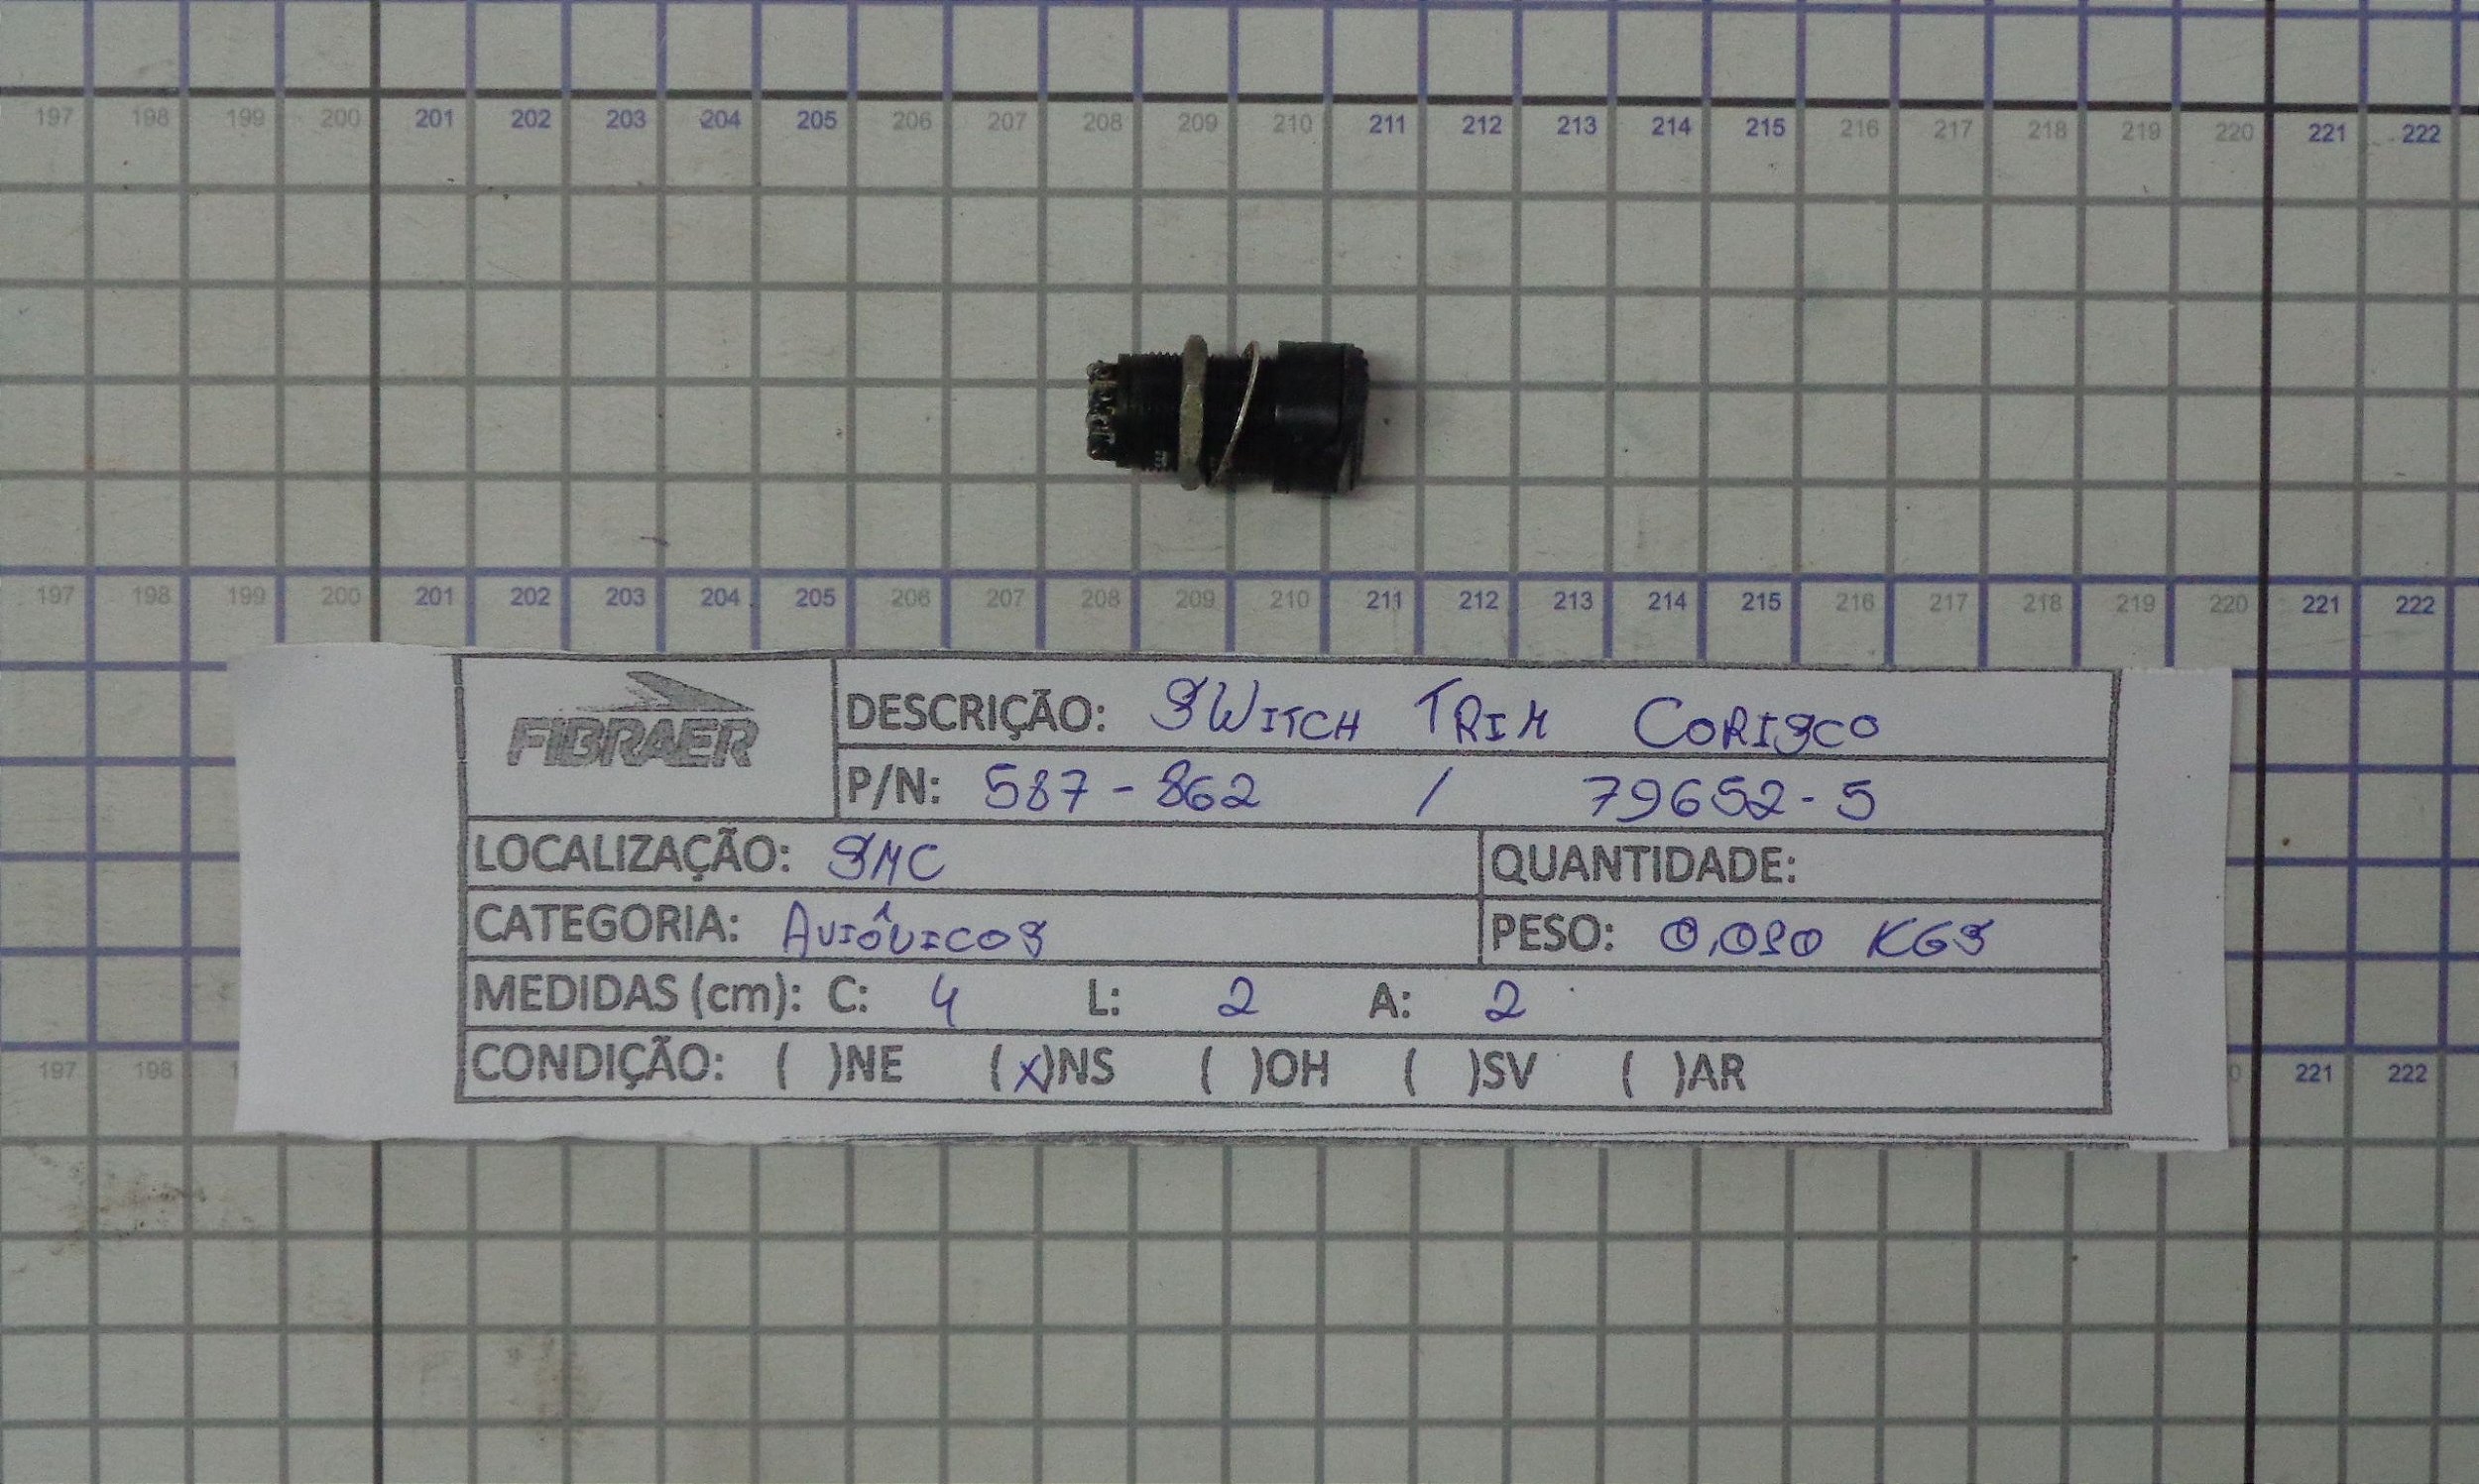 197 198 199 200 201 202 203 204 205 206 207 208 209 210 211 212 213 214 215 216 217 218 219 220 221 222
197 198 199 200 201 202 203 204 205 206 207 208 209 210 211 212 213 214 215 216 217 218 219 220 221 222
FIBRAER
DESCRIÇÃO: SWITCH TRIM CORISCO
P/N: 587-862 / 79652-5
LOCALIZAÇÃO: SMC
QUANTIDADE:
CATEGORIA: AVIÔNICOS
PESO: 0,010 KGS
MEDIDAS (cm): C: 4 L: 2 A: 2
CONDIÇÃO: ( )NE (x)NS ( )OH ( )SV ( )AR
197 198 221 222